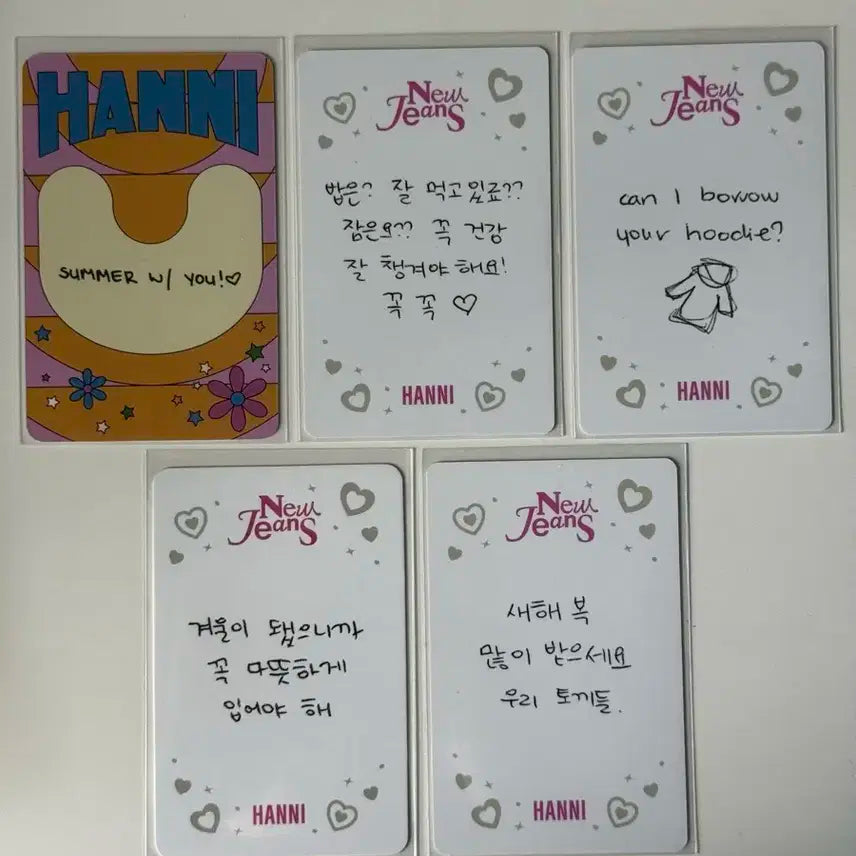 HANNI
SUMMER W/ YOU!♡
New
Jeans
밥은? 잘 먹고있죠??
잠은요?? 꼭 건강
잘 챙겨야해요!
꼭 꼭 ♡
HANNI
New
Jeans
can I borrow
your hoodie?
HANNI
New
Jeans
겨울이 됐으니까
꼭 따뜻하게
입어야 해
HANNI
New
Jeans
새해 복
많이 받으세요
우리 토끼들.
HANNI